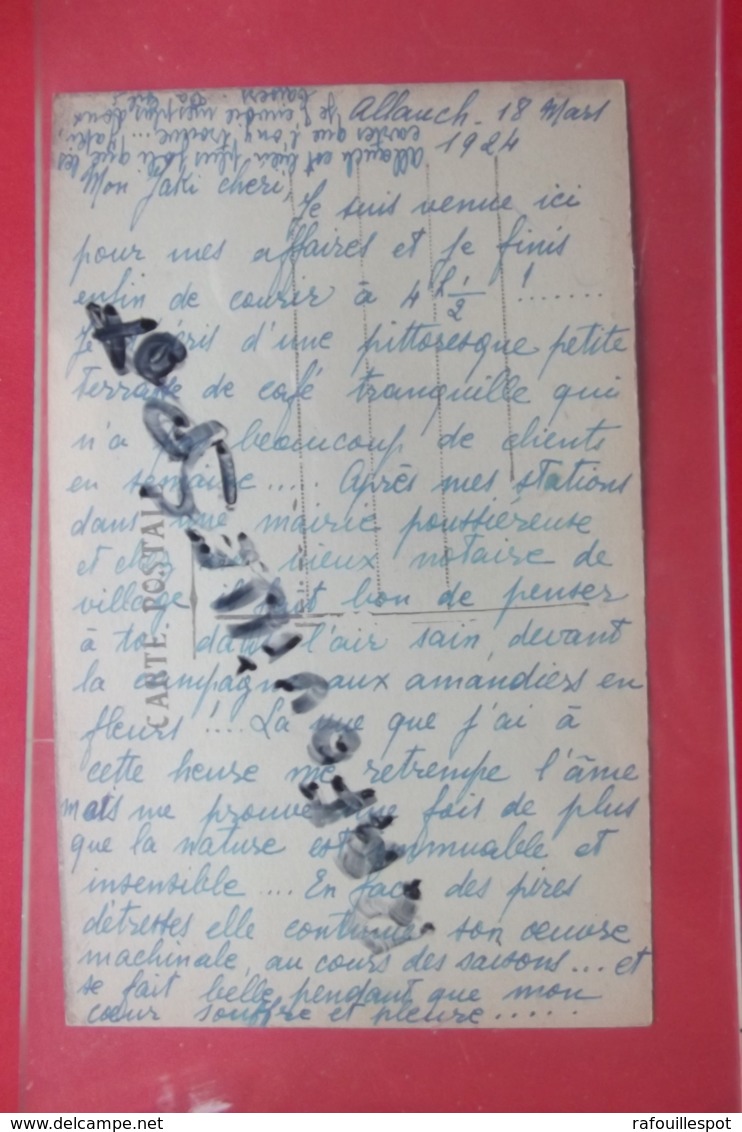 Allauch - 18 Mars
1924
Mon Jaki cheri,
Je suis venue ici
pour mes affaires et je finis
enfin de courir à 4 h 1/2 !......
Je d'une pittoresque petite
terrasse de café tranquille qui
n'a beaucoup de clients
en semaine..... Après mes stations
dans une mairie poussiéreuse
et chez vieux notaire de
village il fait bon de penser
à toi dans l'air sain, devant
la campagne aux amandiers en
fleurs !.... La vue que j'ai à
cette heure me retrempe l'âme
mais me prouve une fois de plus
que la nature est immuable et
insensible .... En face des pires
détresses elle continue son oeuvre
machinale, au cours des saisons... et
se fait belle pendant que mon
coeur souffre et pleure .....
Allauch est bien plus joli que les
cartes que l'on y trouve... Jaki
je t'envoie mes plus doux
baisers.
CARTE POSTALE
delcampe.net
rafouillespot